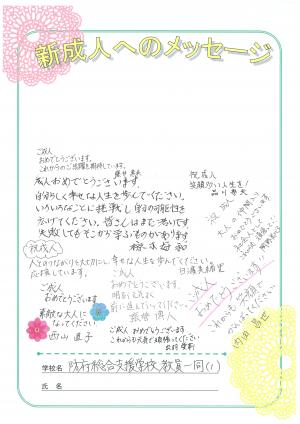 新成人へのメッセージ
ご成人
おめでとうございます。
これからのご活躍を期待しています。
祝成人
笑顔多い人生を!
成人おめでとうございます。
自分らしく幸せな人生を歩んでください。
いろいろなことに挑戦し自分の可能性を
広げてください。皆さんはまだ若いです
失敗してもそこから学ぶものがあります
祝成人
大人の仲間入り
おめでとうございます
祝成人
人とのつながりを大切に、幸せな人生を歩んでください。
応援しています。
ご成人
おめでとうございます
素敵な大人に
なってください。
西山 直子
ご成人
おめでとうございます。
明るく元気よく
前に進んでいってください。
ご成人
おめでとうございます!!
ご成人 おめでとうございます
これからも元気で頑張ってください
内田 昌世
学校名 防府総合支援学校 教員一同(1)
氏 名